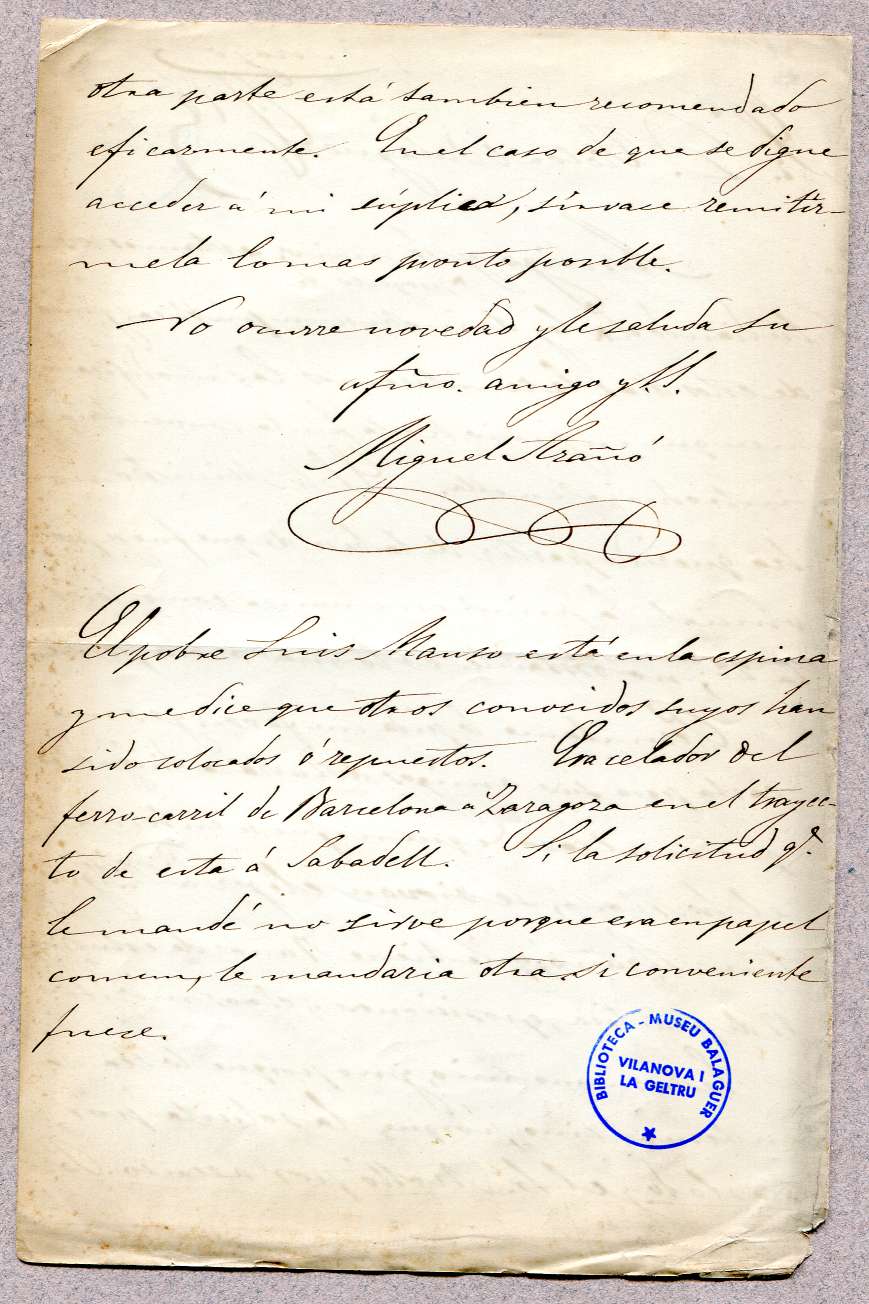 otra parte está tambien recomendado
eficazmente. En el caso de que se digne
acceder á mi súplica, sírvase remitír-
mela lo mas pronto posible.
No ocurre novedad y le saluda su
afmo. amigo y S.S.
Miguel Arañó
El pobre Luis Manso está en la espina
y me dice que otros conocidos suyos han
sido colocados ó repuestos. Era celador del
ferro-carril de Barcelona á Zaragoza en el trayec-
to de esta á Sabadell. Si la solicitud qe.
le mandé no sirve porque era en papel
comun, le mandaria otra si conveniente
fuese.
BIBLIOTECA - MUSEU BALAGUER
VILANOVA I
LA GELTRU